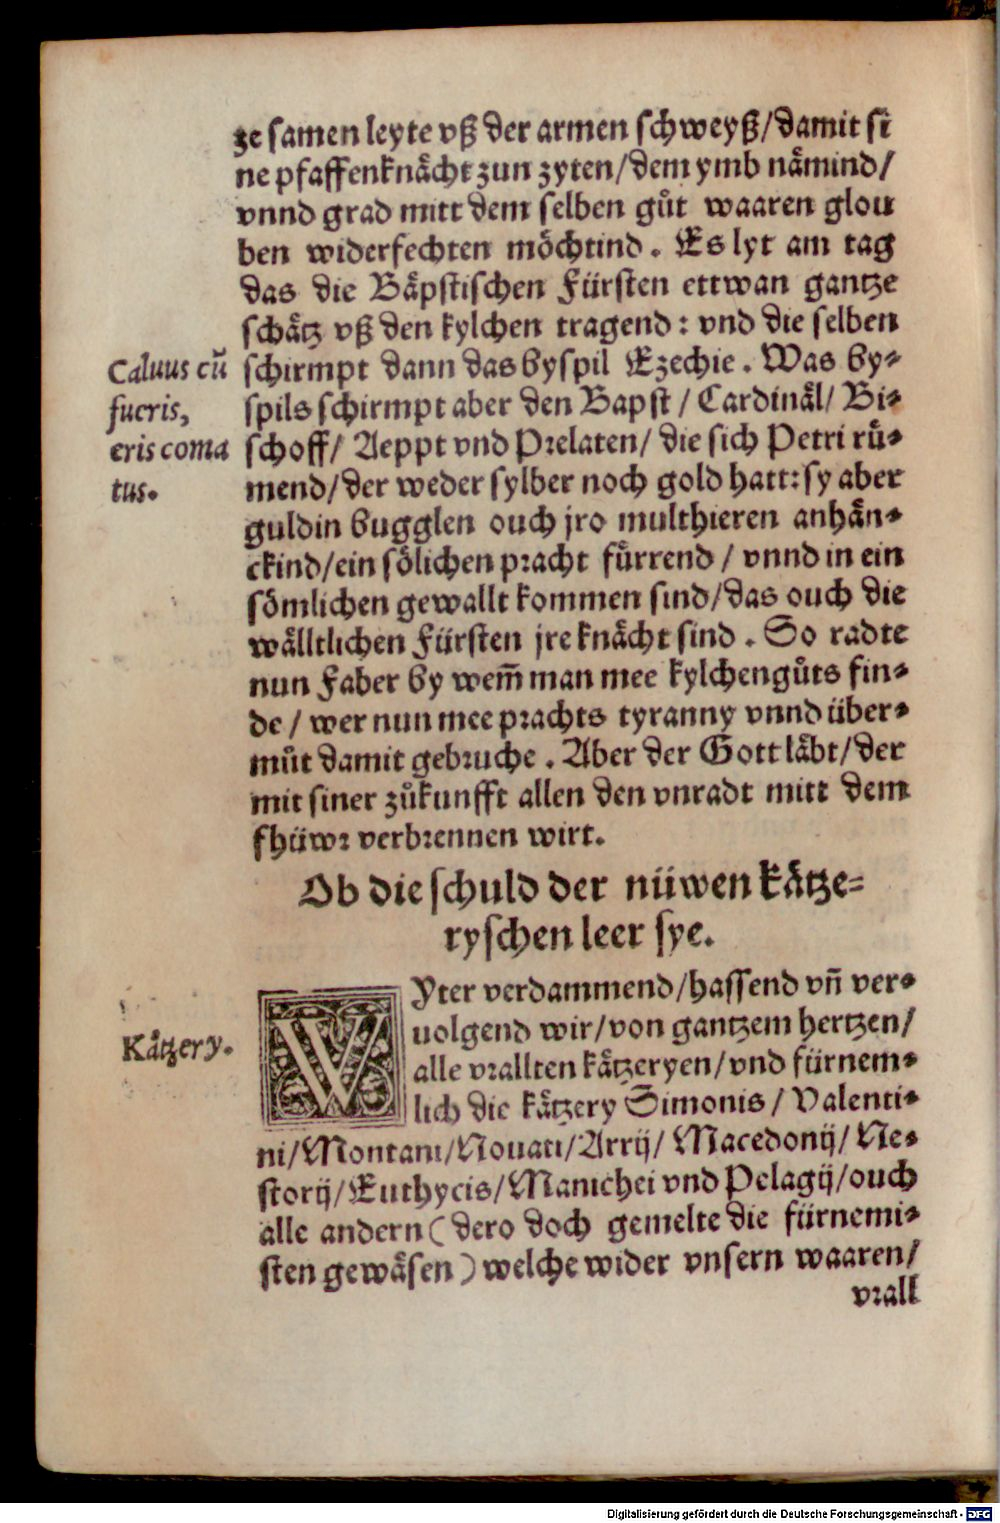 ze samen leyte vß der armen schweyß/damit si
ne pfaffenknächt zun zyten/dem ymb nämind/
vnnd grad mitt dem selben gůt waaren glou
ben widerfechten möchtind. Es lyt am tag
das die Bäpstischen Fürsten ettwan gantze
schätz vß den kylchen tragend: vnd die selben
schirmpt dann das byspil Ezechie. Was by⸗
spils schirmpt aber den Bapst/ Cardinäl/ Bi⸗
schoff/ Aeppt vnd Prelaten/ die sich Petri rů⸗
mend/der weder sylber noch gold hatt: sy aber
guldin bugglen ouch jro multhieren anhän⸗
ckind/ein sölichen pracht fürrend/ vnnd in ein
sömlichen gewallt kommen sind/das ouch die
wälltlichen Fürsten jre knächt sind. So radte
nun Faber by wem̃ man mee kylchengůts fin⸗
de/ wer nun mee prachts tyranny vnnd über⸗
můt damit gebruche. Aber der Gott läbt/der
mit siner zůkunfft allen den vnradt mitt dem
fhüwr verbrennen wirt.
Caluus cũ
fueris,
eris coma
tus.
Ob die schuld der nüwen kätze⸗
ryschen leer sye.
Kätzery.
VYter verdammend/hassend vñ ver⸗
uolgend wir/von gantzem hertzen/
alle vrallten kätzeryen/vnd fürnem⸗
lich die kätzery Simonis/ Valenti⸗
ni/Montani/Nouati/Arrij/ Macedonij/ Ne⸗
storij/Euthycis/Manichei vnd Pelagij/ouch
alle andern (dero doch gemelte die fürnemi⸗
sten gewäsen) welche wider vnsern waaren/
vrall
Digitalisierung gefördert durch die Deutsche Forschungsgemeinschaft - DFG